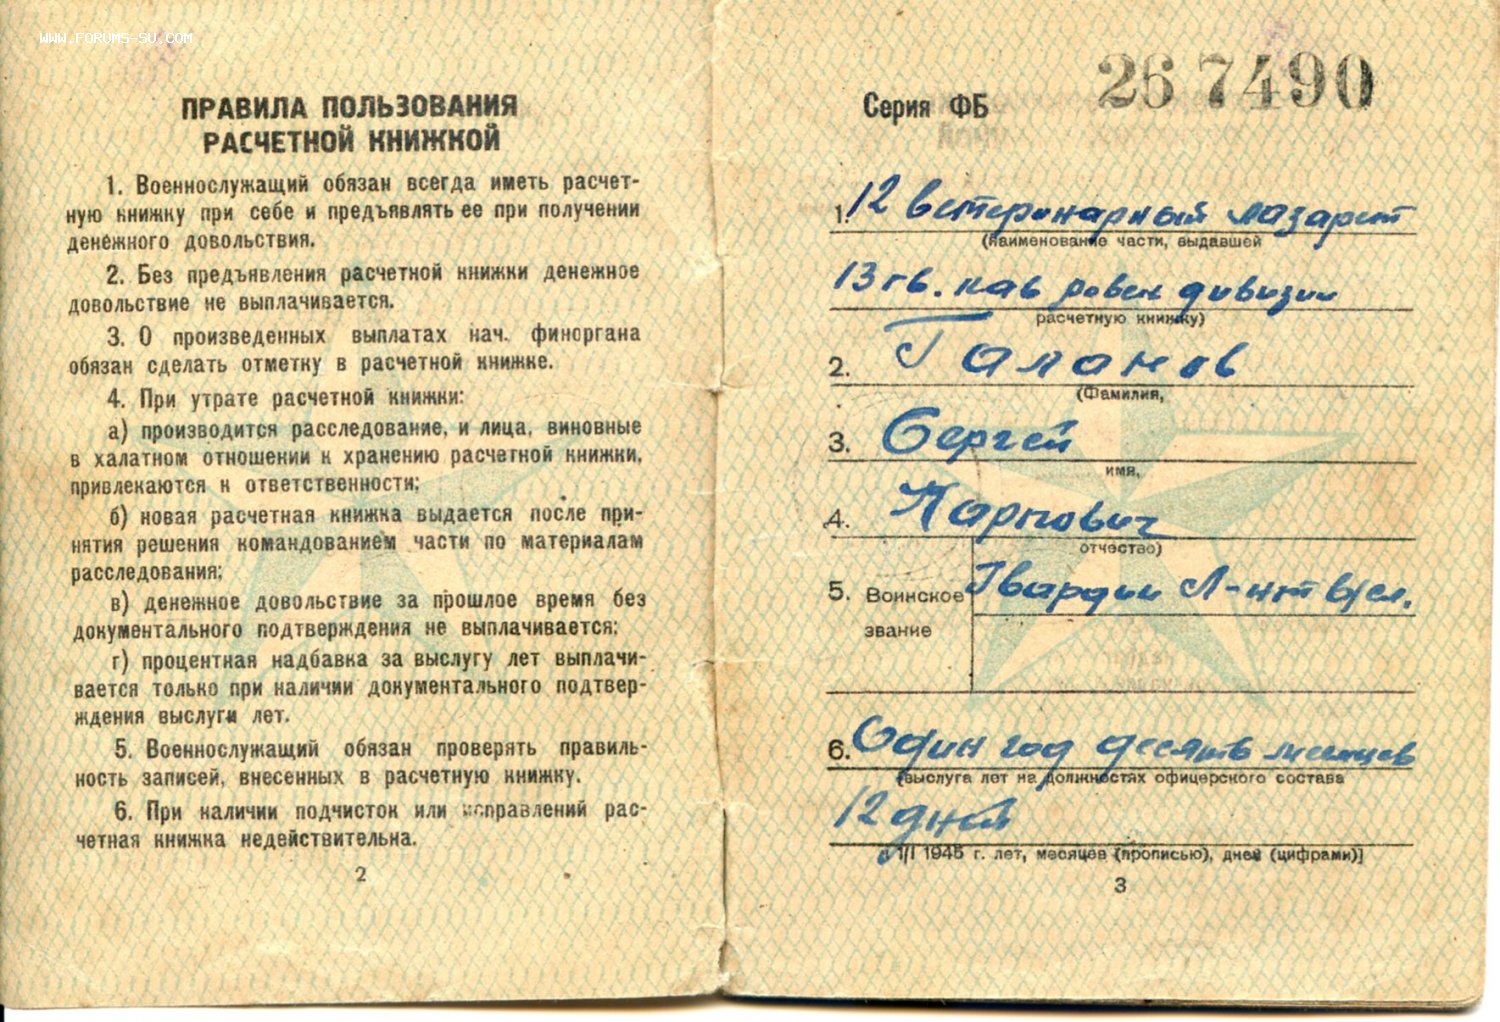 WWW.FORUMS-SU.COM
ПРАВИЛА ПОЛЬЗОВАНИЯ
РАСЧЕТНОЙ КНИЖКОЙ
1. Военнослужащий обязан всегда иметь расчет-
ную книжку при себе и предъявлять ее при получении
денежного довольствия.
2. Без предъявления расчетной книжки денежное
довольствие не выплачивается.
3. О произведенных выплатах нач. финоргана
обязан сделать отметку в расчетной книжке.
4. При утрате расчетной книжки:
а) производится расследование, и лица, виновные
в халатном отношении к хранению расчетной книжки,
привлекаются к ответственности;
б) новая расчетная книжка выдается после при-
нятия решения командованием части по материалам
расследования;
в) денежное довольствие за прошлое время без
документального подтверждения не выплачивается;
г) процентная надбавка за выслугу лет выплачи-
вается только при наличии документального подтвер-
ждения выслуги лет.
5. Военнослужащий обязан проверять правиль-
ность записей, внесенных в расчетную книжку.
6. При наличии подчисток или исправлений рас-
четная книжка недействительна.
2
Серия ФБ 267490
1. 12 ветеринарный лазарет
(наименование части, выдавшей
13 гв. кав ровен дивизии
расчетную книжку)
2. Галанов
(Фамилия,
3. Сергей
имя,
4. Карпович
отчество)
5. Воинское Гвардии Л-нт в/сл.
звание
6. Один год десять месяцев
(выслуга лет на должностях офицерского состава
12 дней
1/I 1945 г. лет, месяцев (прописью), дней (цифрами)]
3